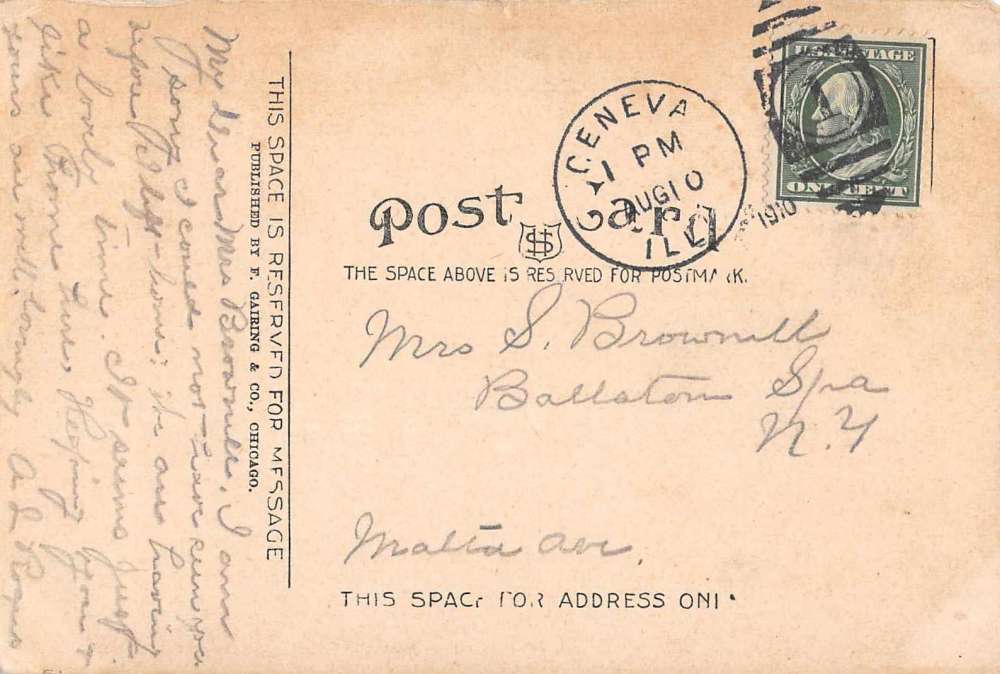 My dear Mrs Brownell, I am
sorry I could not have seen you
before I left home; we are having
a lovely time. It seems just
like home here. Hoping you &
yours are well. Lovingly A L
THIS SPACE IS RESERVED FOR MESSAGE
PUBLISHED BY F. GAIRING & CO., CHICAGO.
U.S. POSTAGE
ONE CENT
GENEVA
1 PM
AUG 10
1910
ILL.
Post Card
THE SPACE ABOVE IS RES RVED FOR POSTMA K.
Mrs S. Brownell
Ballston Spa
N. Y
Malta Ave.
THIS SPACE FOR ADDRESS ONL